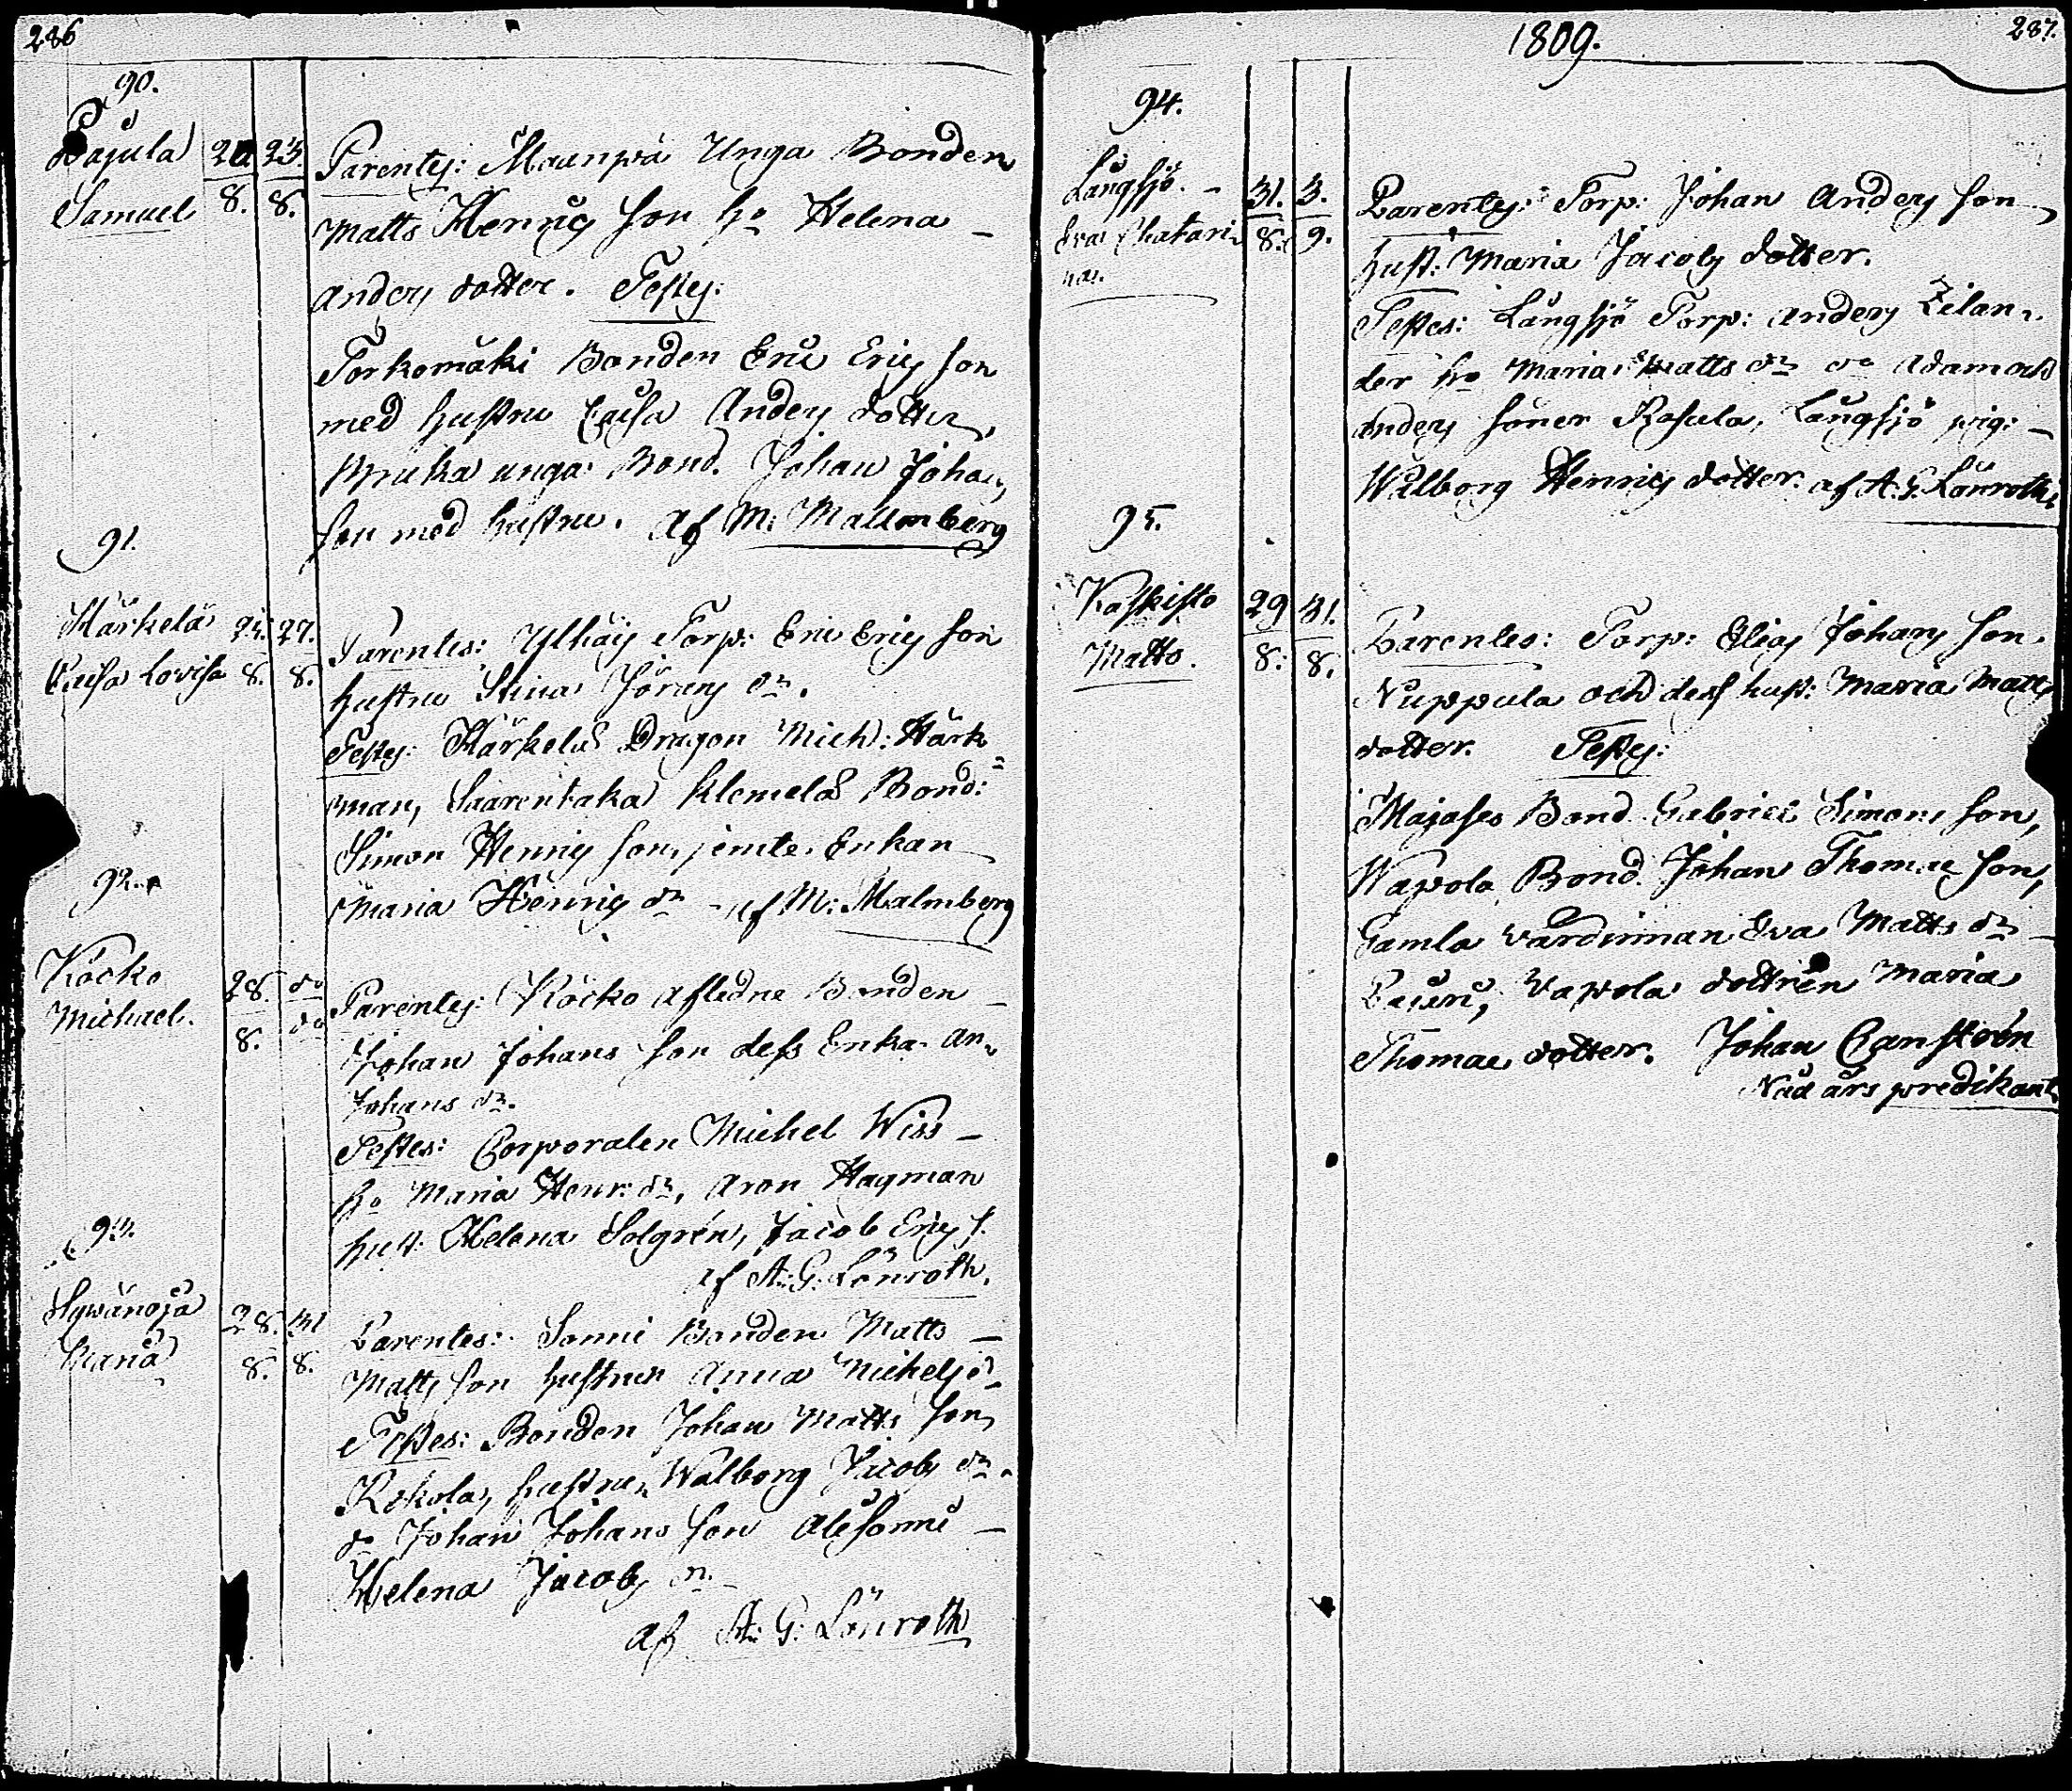 286
90.
Pajula 20 23. Parentes: Maunpä Unga Bonden
Samuel 8. 8. Matts Henrics son ho Helena
Anders dotter. Testes:
Torkomäki Bonden Eric Erics son
med hustru Caisa Anders dotter,
unga Bond. Johan Johans
son med hustru. Af M: Mallmberg
91.
Härkelä 25. 27. Parentes: Ylhäis Torp: Eric Erics son
Caisa Lovisa 8. 8. hustru Stina Jörans dr.
Testes: Härkelä Dragon Mich: Härk=
man, Saarentaka Klemelä Bond:
Simon Henrics son, jemte Enkan
Maria Henrics dr af M: Malmberg
92.
Köcko 28. do Parentes: Köcko afledne Bonden
Michael. 8. do Johan Johans son dess Enka An.
Johans dr.
Testes: Corporalen Michel Wiss
ho Maria Henr: dr, Aron Hagman
hust: Helena Solgrén, Jacob Erics s.
af A: G: Lönroth.
93.
Sywänojä 28. 31 Parentes: Sonni Bonden Matts
8. 8. Matts son hustrun Anna Michels d
Testes: Bonden Johan Matts son
Rekola, hustrun Walborg Jacobs dr.
do Johan Johans son Alisonni
Helena Jacobs dr
af A: G: Lönroth
1809.
287.
94.
Långsjö. 31. 3. Parentes: Torp: Johan Anders son
Eva Chatari 8. 9. hust: Maria Jacobs dotter.
na. Testes: Långsjö Torp: Anders Zilan
der ho Maria Matts dr do Adam och
Anders söner Rosula, Långsjö pig:
Walborg Henrics dotter. af A. G. Lönroth.
95.
Kaskisto 29 31. Parentes: Torp: Elias Johans son.
Matts. 8. 8. Nuppula och dess hust: Maria Matts
dotter. Testes:
Majases Bond Gabriel Simons son,
Wapola Bond. Johan Thomae son,
Gamla värdinnan Eva Matts dr
Wapola dottren Maria
Thomae dotter. Johan Canström
Nåd års predikant.